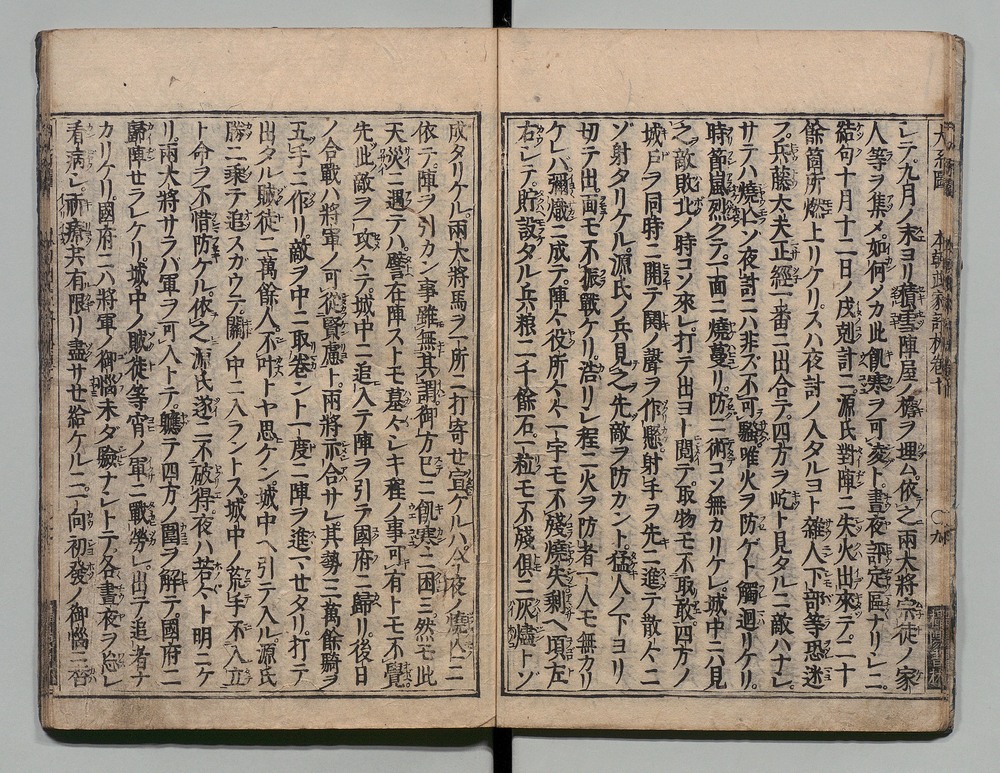 レテ九月ノ末ヨリ積雪陣屋ノ檐ヲ埋ム依之兩大將宗徒ノ家
人等ヲ集メ如何ノカ此飢寒ヲ可凌ト晝夜評定區ナリシニ
結句十月十二日ノ戌剋計ニ源氏對陣ニ失火出來テ二十
餘箇所燃上リケリスハ夜討ノ入タルヨト雜人下部等恐迷
フ兵藤大夫正經一番ニ出合テ四方ヲ屹ト見タルニ敵ハナシ
サテハ燒亡ソ夜討ニハ非ズ不可騷唯火ヲ防ゲト觸迴リケリ
時節嵐烈クテ一面ニ燒蔓リ防ニ術コソ無カリケレ城中ニハ見
之敵敗北ノ時コソ來レ打テ出ヨト鬩テ取物モ不取敢四方ノ
城戸ヲ同時ニ開テ鬨ノ聲ヲ作懸射手ヲ先ニ進テ散々ニ
ゾ射タリケル源氏ノ兵見之先敵ヲ防カント猛人ノ下ヨリ
切テ出面モ不振戰ケリ浩リシ程ニ火ヲ防者一人モ無カリ
ケレバ彌熾ニ成テ陣々役所々々一宇モ不殘燒失剩ヘ項左
右シテ貯設タル兵粮二千餘石一粒モ不殘俱ニ灰燼トソ
成タリケル兩大將馬ヲ一所ニ打寄セ宣ケルハ今夜ノ燒亡ニ
依テ陣ヲ引カン事雖無其謂御方已ニ飢寒ニ困三然モ此
天災ニ遇テハ譬在陣ストモ墓々シキ程ノ事可有トモ不覺
先此敵ヲ一攻々テ城中ニ追入テ陣ヲ引テ國府ニ歸リ後日
ノ合戰ハ將軍ノ可從賢慮ト兩將示合サレ其勢三萬餘騎ヲ
五手ニ作リ敵ヲ中ニ取巻ント一度ニ陣ヲ進ヘセタリ打テ
出タル賊徒二萬餘人不叶トヤ思ケン城中ヘ引テ入ル源氏
勝ニ乘テ追スガウテ關ノ中ニ入ラントス城中ノ荒手不入立
ト命ヲ不惜防ケル依之源氏遂ニ不破得夜ハ若々ト明ニケ
リ兩大將サラバ軍ヲ可入トテ軈テ四方ノ圍ヲ解テ國府ニ
歸陣セラレケリ城中ノ賊徒等宵ノ軍ニ戰勞レ出テ追者ナ
カリケリ國府ニハ將軍ノ御惱未ダ驗ナシトテ各晝夜ヲ忘レ
看病シ祈療共有限リ盡サせ給ケルニゾ向初發ノ御惱三香